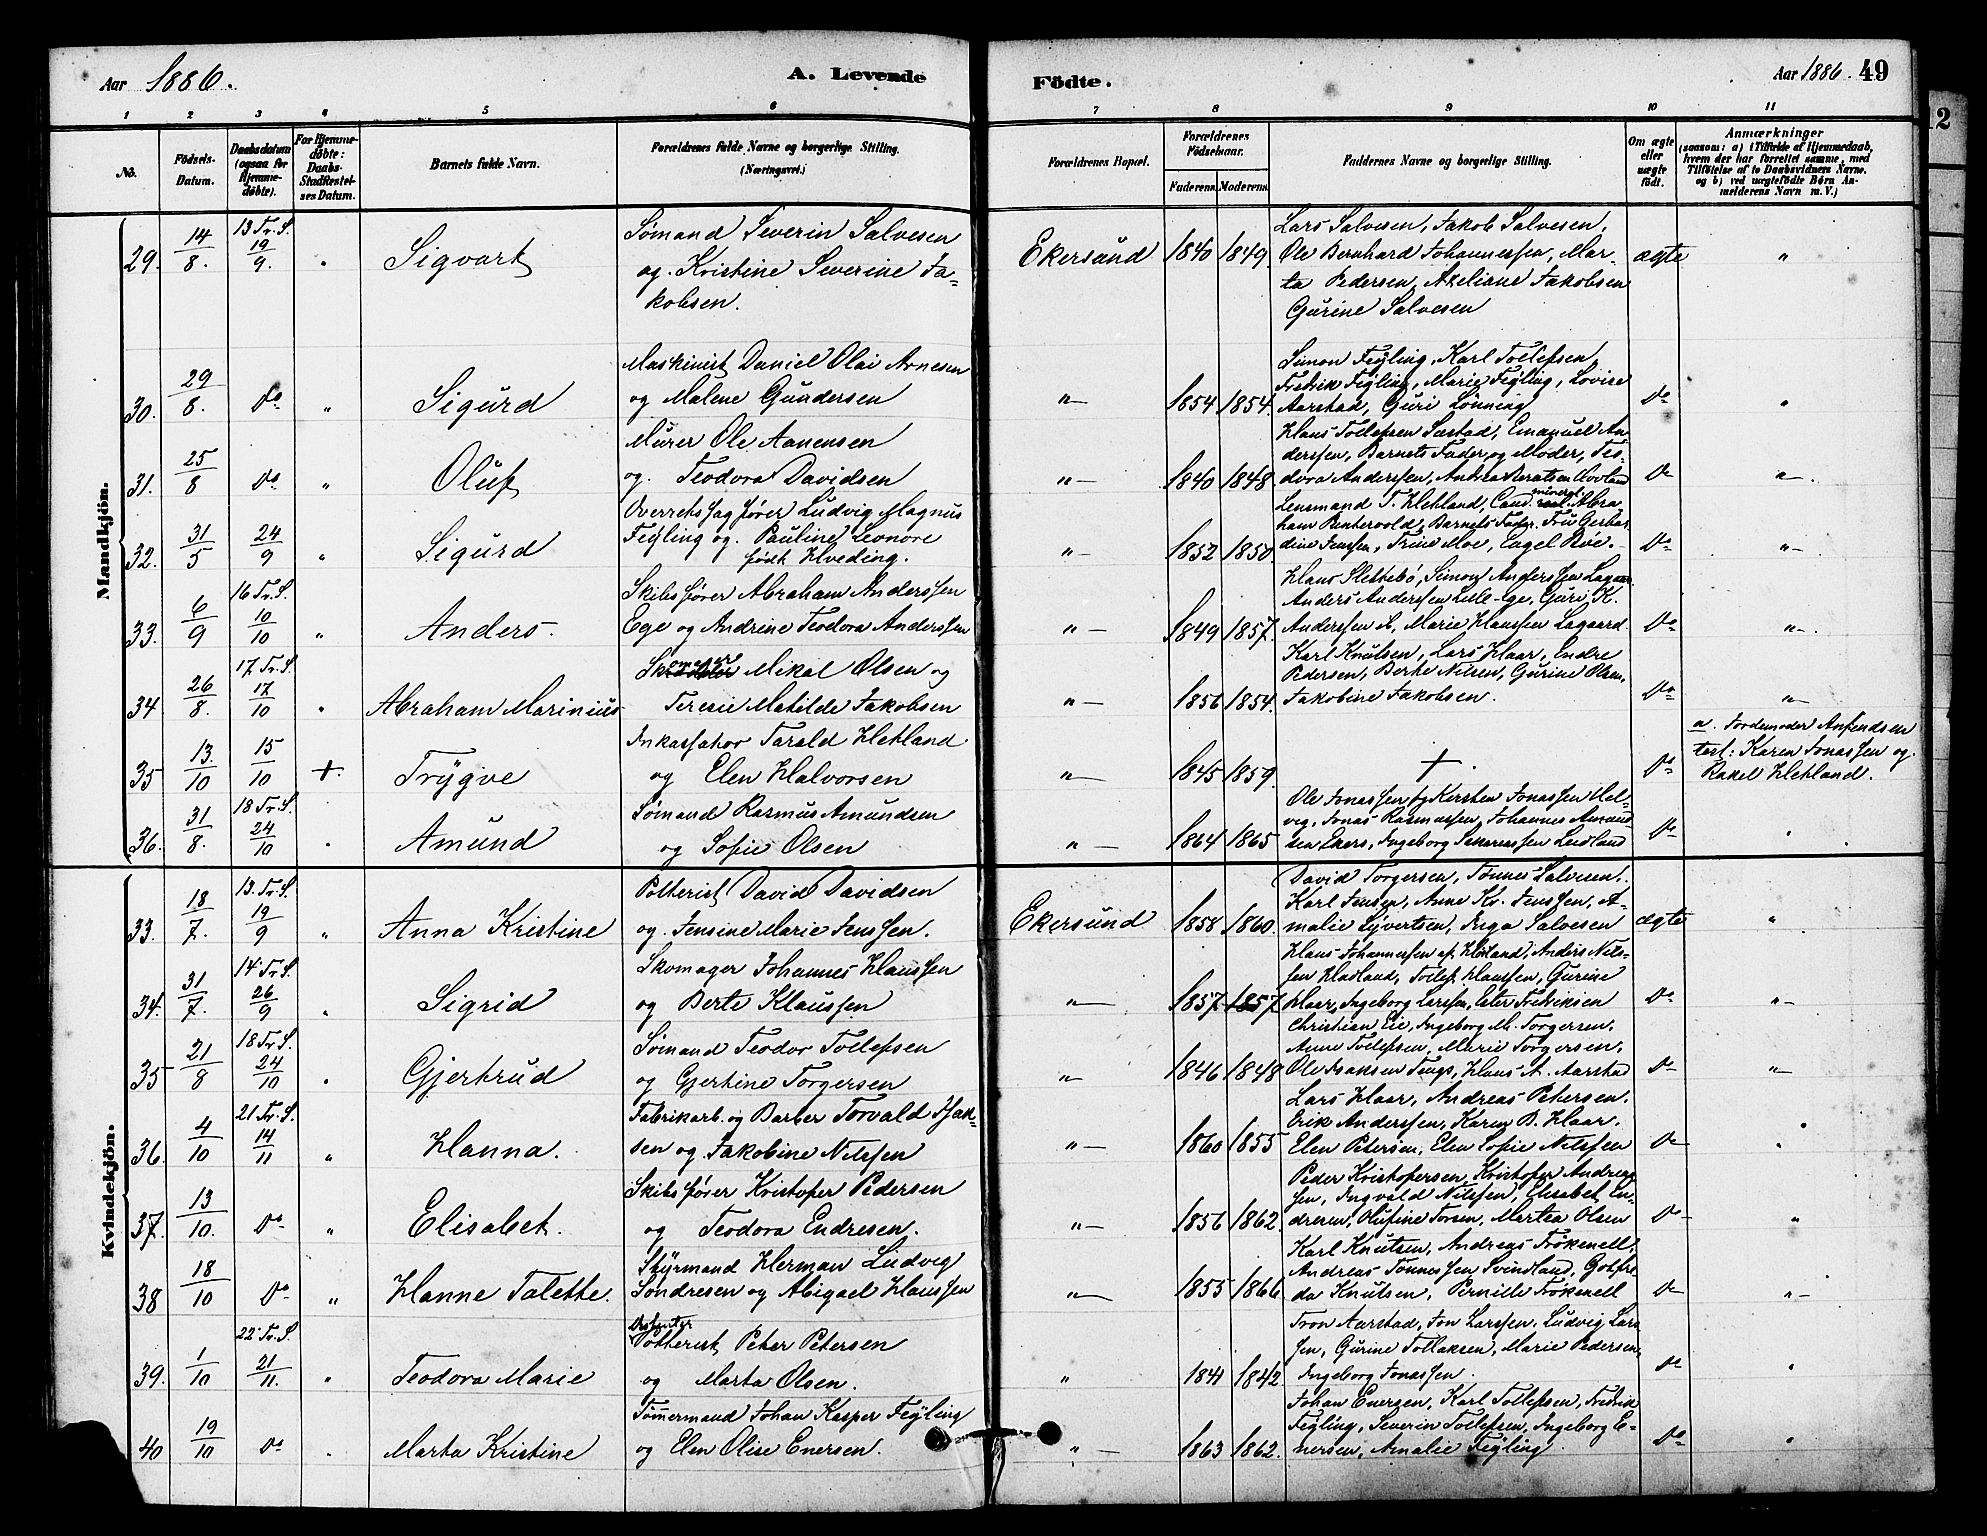 Aar 1886.
A. Levende
Födte.
Aar 1886. 49
12
1 2 3 4 5 6 7 8 9 10 11
No.
Födsels-
Datum.
Daabsdatum
(ogsaa for
Hjemme-
døbte).
For Hjemme-
døbte:
Daabs-
Stadfæstel-
ses Datum.
Barnets fulde Navn.
Forældrenes fulde Navne og borgerlige Stilling.
(Næringsvei.)
Forældrenes Bopæl.
Forældrenes
Födselsaar.
Faderens. Moderens.
Faddernes Navne og borgerlige Stilling.
Om ægte
eller
uægte
født.
Anmærkninger
(saasom: a) i Tilfælde af Hjemmedaab,
hvem der har forrettet samme, med
Tilföielse af to Daabsvidners Navne,
og b) ved uægtefødte Børn An-
melderens Navn m. V.)
Mandkjön.
29. 14/8. 13 Tr. S. 19/9. " Sigvart
Sømand Severin Salvesen
og Kristine Severine Ja-
kobsen.
Ekersund 1840 1849.
Lars Salvesen, Jakob Salvesen,
Ole Bernhard Johannessen, Mar-
ta Pedersen, Axeliane Jakobsen
Gurine Salvesen
ægte "
30. 29/8. do " Sigurd
Maskinist Daniel Olai Arnesen
og Malene Gundersen
"— 1854 1854.
Simon Feyling, Karl Tollefsen,
Fredrik Feyling, Marie Feyling, Lovise
Aarstad, Guri Lønning
do "
31. 25/8 do " Oluf
Murer Ole Aanensen
og Teodora Davidsen
"— 1840 1848
Hans Tollefsen Sæstad, Emanuel An-
derssen, Barnets Fader og Moder, Teo-
dora Anderssen, Andrea Hovland
do "
32. 31/5 24/9 " Sigurd
Overretssagfører Ludvig Magnus
Feyling og Pauline Leonore
født Hveding.
"— 1852 1850
Lensmand T. Hetland, Cand. mineral. Abra-
ham Bentervold, Barnets Fader, Fru Gerhar-
dine Jenssen, Trine Moe, Engel Bøe.
do "
33. 6/9 16 Tr. S. 10/10 " Anders.
Skibsfører Abraham Anderssen
Ege og Andrine Teodora Anderssen
"— 1849 1857.
Hans Slettebö, Simon Anderssen Lagaard
Anders Anderssen Lille-Ege, Guri K.
Anderssen, Marie Hanssen Lagaard.
do "
34 26/8. 17. Tr. S. 17/10 " Abraham Marinius
Skomager Mikal Olsen og
Teresie Matilde Jakobsen
"— 1856 1854.
Karl Knutsen, Lars Haar, Endre
Pedersen, Berte Nilsen, Gurine Olsen,
Jakobine Jakobsen.
do "
35 13./10 15/10 +. Trÿgve
Inkassator Tarald Hetland
og Elen Halvorsen
"— 1845 1859.
+.
do
a. Jordemoder Anfindsen
test: Karen Jonassen og
Rakel Hetland.
36. 31/8. 18 Tr. S. 24/10 " Amund
Sømand Rasmus Amundsen
og Sofie Olsen
"— 1864 1865
Ole Jonassen og Kirsten Jonassen Hel-
vig, Jonas Rasmussen, Johannes Amund-
sen Ekers, Ingeborg Sakariassen Leidland
do "
Kvindekjön.
33. 18/7. 13. Tr. S. 19/9 " Anna Kristine
Potterist David Davidsen
og Jensine Marie Jenssen.
Ekersund 1858 1860.
David Torgersen, Tønnes Salvesen.
Karl Jensen, Anne Kr. Jenssen, A-
malie Syvertsen, Inga Salvesen
ægte "
34. 31/7. 14 Tr. S. 26/9 " Sigrid
Skomager Johannes Hanssen
og Berte Klaussen
"— 1857 1857
Hans Johannessen af Hetland, Anders Nils-
sen Hadland, Tollef Hanssen, Gurine
Haar, Ingeborg Larssen, Fredriksen
do "
35 21/8 18 Tr. S. 24/10 " Gjertrud
Sømand Teodor Tollefsen
og Gjertine Torgersen
"— 1846 1848
Christian Eie, Ingeborg M. Torgersen,
Anne Tollefsen, Marie Torgersen,
Ole Isaksen Tengs, Hans A. Aarstad
do "
36. 4/10 21 Tr. S. 14/11 " Hanna.
Fabrikarb. og Barber Torvald Isak-
sen og Jakobine Nilssen
"— 1860 1855
Lars Haar, Andreas Petersen.
Erik Anderssen, Karen B. Haar.
Elen Petersen, Elen Sofie Nilssen
do "
37. 13/10. do " Elisabet.
Skibsfører Kristofer Pedersen
og Teodora Endresen.
"— 1856 1862.
Peder Kristofersen, Kristofer Andreas-
sen, Ingvald Nilssen, Elisabet En-
dresen, Olufine Torsen, Martea Olsen
do "
38 18/10 do " Hanne Talette.
Styrmand Herman Ludvig
Søndresen og Abigael Hanssen
"— 1855 1866
Karl Knutsen, Andreas Frøkenell,
Andreas Tønnessen Svindland, Gotfre-
da Knutsen, Pernille Frøkenell
do "
39. 1/10 22 Tr. S. 21/11. " Teodora Marie
Dissenter
Potterist Peter Petersen
og Marta Olsen.
" 1841 1842.
Tron Aarstad, Jon Larssen, Ludvig Lars-
sen, Gurine Tollaksen, Marie Pedersen,
Ingeborg Jonassen.
do "
40 19/10 do " Marta Kristine
Tømmermand Johan Kasper Feyling
og Elen Olise Enersen.
"— 1863 1862.
Johan Enersen, Karl Tollefsen, Fredrik
Feyling, Severin Tollefsen, Ingeborg E-
nersen, Amalie Feyling.
do "